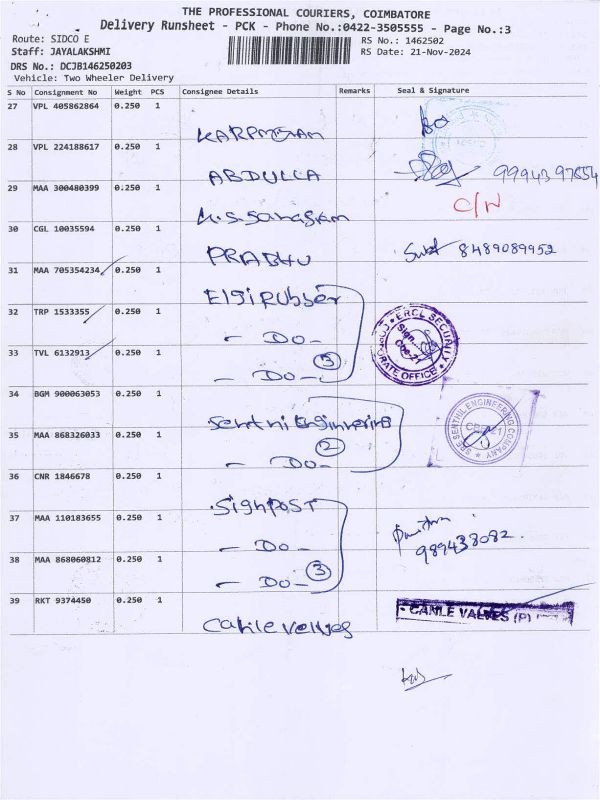 THE PROFESSIONAL COURIERS, COIMBATORE
Delivery Runsheet - PCK - Phone No.:0422-3505555 - Page No.:3
Route: SIDCO E
RS No.: 1462502
Staff: JAYALAKSHMI
RS Date: 21-Nov-2024
DRS No.: DCJB146250203
Vehicle: Two Wheeler Delivery
S No Consignment No Weight PCS Consignee Details Remarks Seal & Signature
27 VPL 405862864 0.250 1
28 VPL 224188617 0.250 1
ABDULLA
29 MAA 300480399 0.250 1
C/N
30 CGL 10035594 0.250 1
PRABHU 8489089952
31 MAA 705354234 0.250 1
Elgi Rubber
32 TRP 1533355 0.250 1
- Do -
ERCL SECURITY
CORPORATE OFFICE
33 TVL 6132913 0.250 1
- Do - 3
34 BGM 900063053 0.250 1
Senthil Engineering
SRE SENTHIL ENGINEERING COMPANY
35 MAA 868326033 0.250 1
- Do - 2
36 CNR 1846678 0.250 1
Signpost
37 MAA 110183655 0.250 1
- Do -
989438082
38 MAA 868060812 0.250 1
- Do - 3
39 RKT 9374450 0.250 1
CANLE VALVES (P)
Canle valves